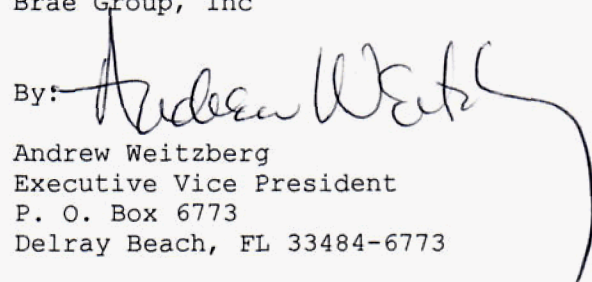 Brae Group, Inc
By: Andrew Weitz
Andrew Weitzberg
Executive Vice President
P. O. Box 6773
Delray Beach, FL 33484-6773